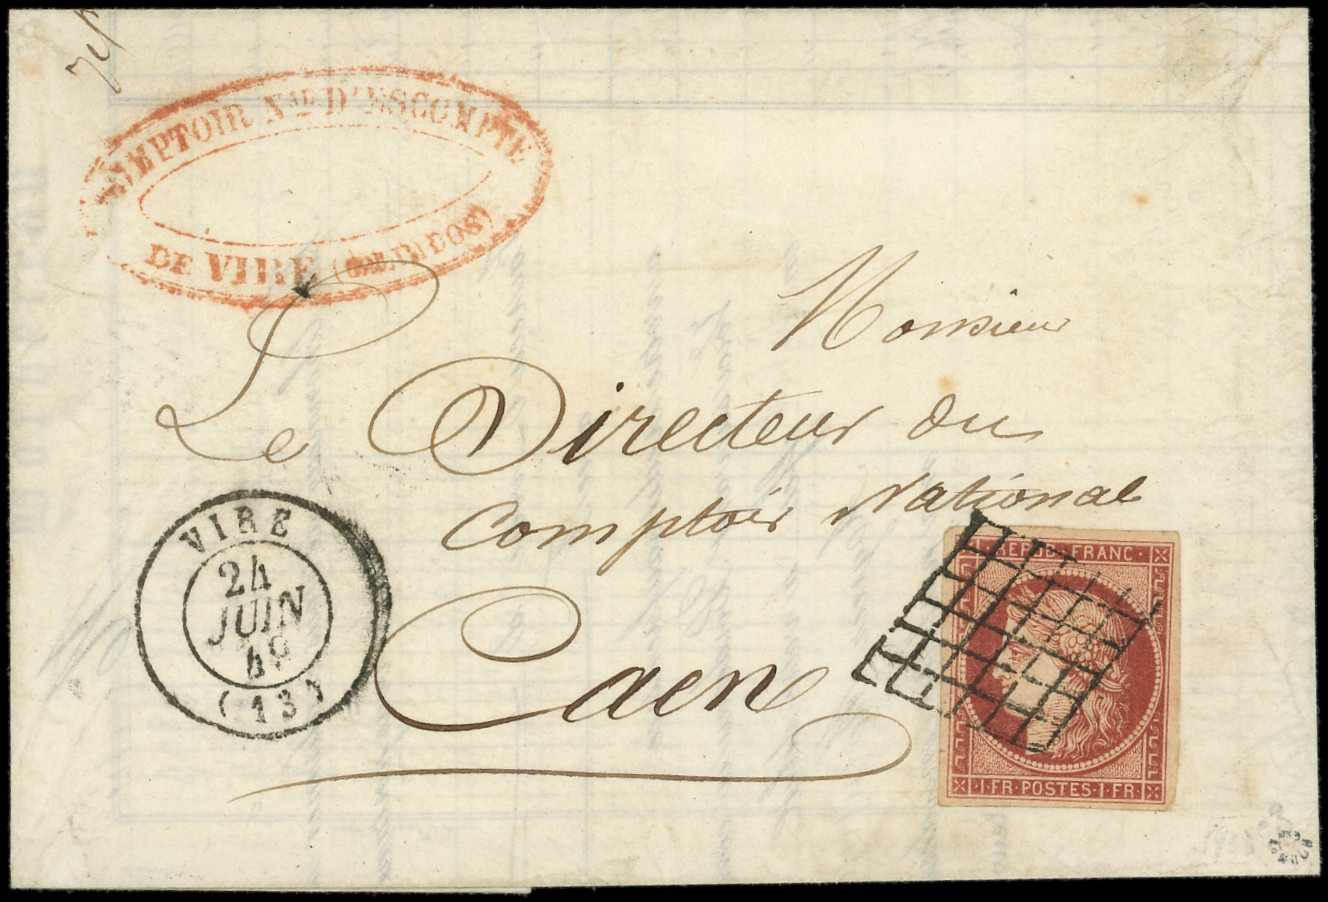 COMPTOIR Nal D'ESCOMPTE
DE VIRE (CALVADOS)
Monsieur
Le Directeur du
Comptoir National
Caen
VIRE
24
JUIN
49
(13)
REPUB. FRANC.
1·FR·POSTES·1·FR·